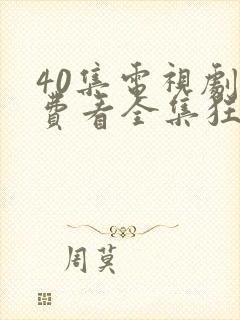 40集電視劇
費看全集狂
周莫